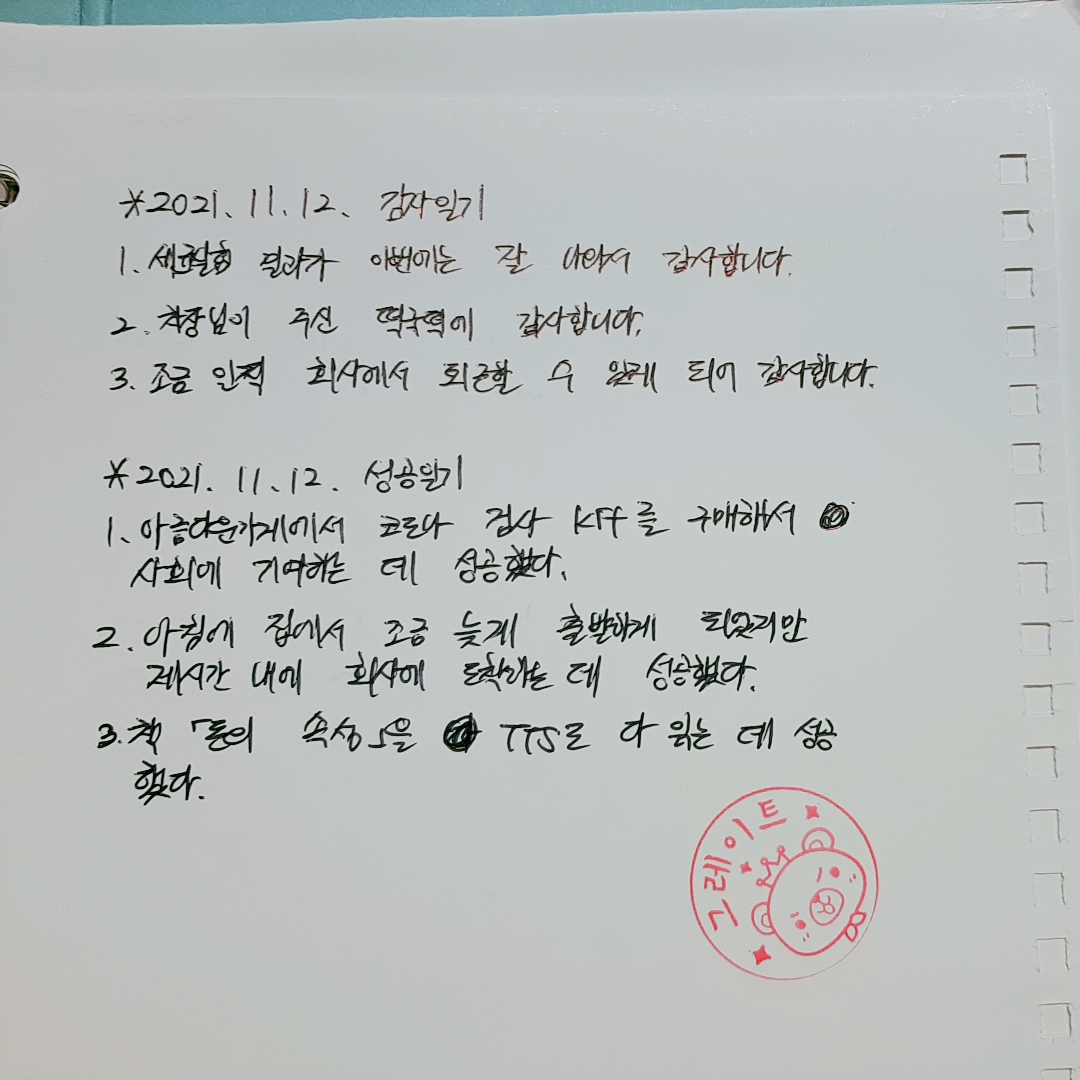 *2021. 11. 12. 감사일기
1. 세포실험 결과가 이번에는 잘 나와서 감사합니다.
2. 차장님이 주신 떡국떡에 감사합니다.
3. 조금 일찍 회사에서 퇴근할 수 있게 되어 감사합니다.
*2021. 11. 12. 성공일기
1. 아름다운가게에서 코로나 검사 KIT를 구매해서
사회에 기여하는 데 성공했다.
2. 아침에 집에서 조금 늦게 출발하게 되었지만
제시간 내에 회사에 도착하는 데 성공했다.
3. 책 「돈의 속성」을 TTS로 다 읽는 데 성공
했다.
그레이트